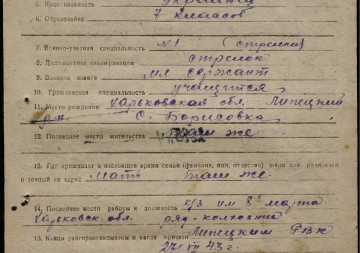 5. Национальность украинец
6. Образование 7 классов
7. Военно-учетная специальность №1 (стрелки)
8. Должностная квалификация стрелок
9. Военное звание мл сержант
10. Гражданская специальность учащийся
11. Место рождения Харьковская обл. Липецкий
р-н с. Борисовка
12. Последнее место жительства там же
13. Где проживает в настоящее время семья (фамилия, имя, отчество) жены или родителей
и точный их адрес мать там же
14. Последнее место работы и должность к/з им 8го марта
Харьковск. обл. ряд. колхозн
15. Каким райгорвоенкоматом и когда призван Липецким РВК
27 VIII 43 г.